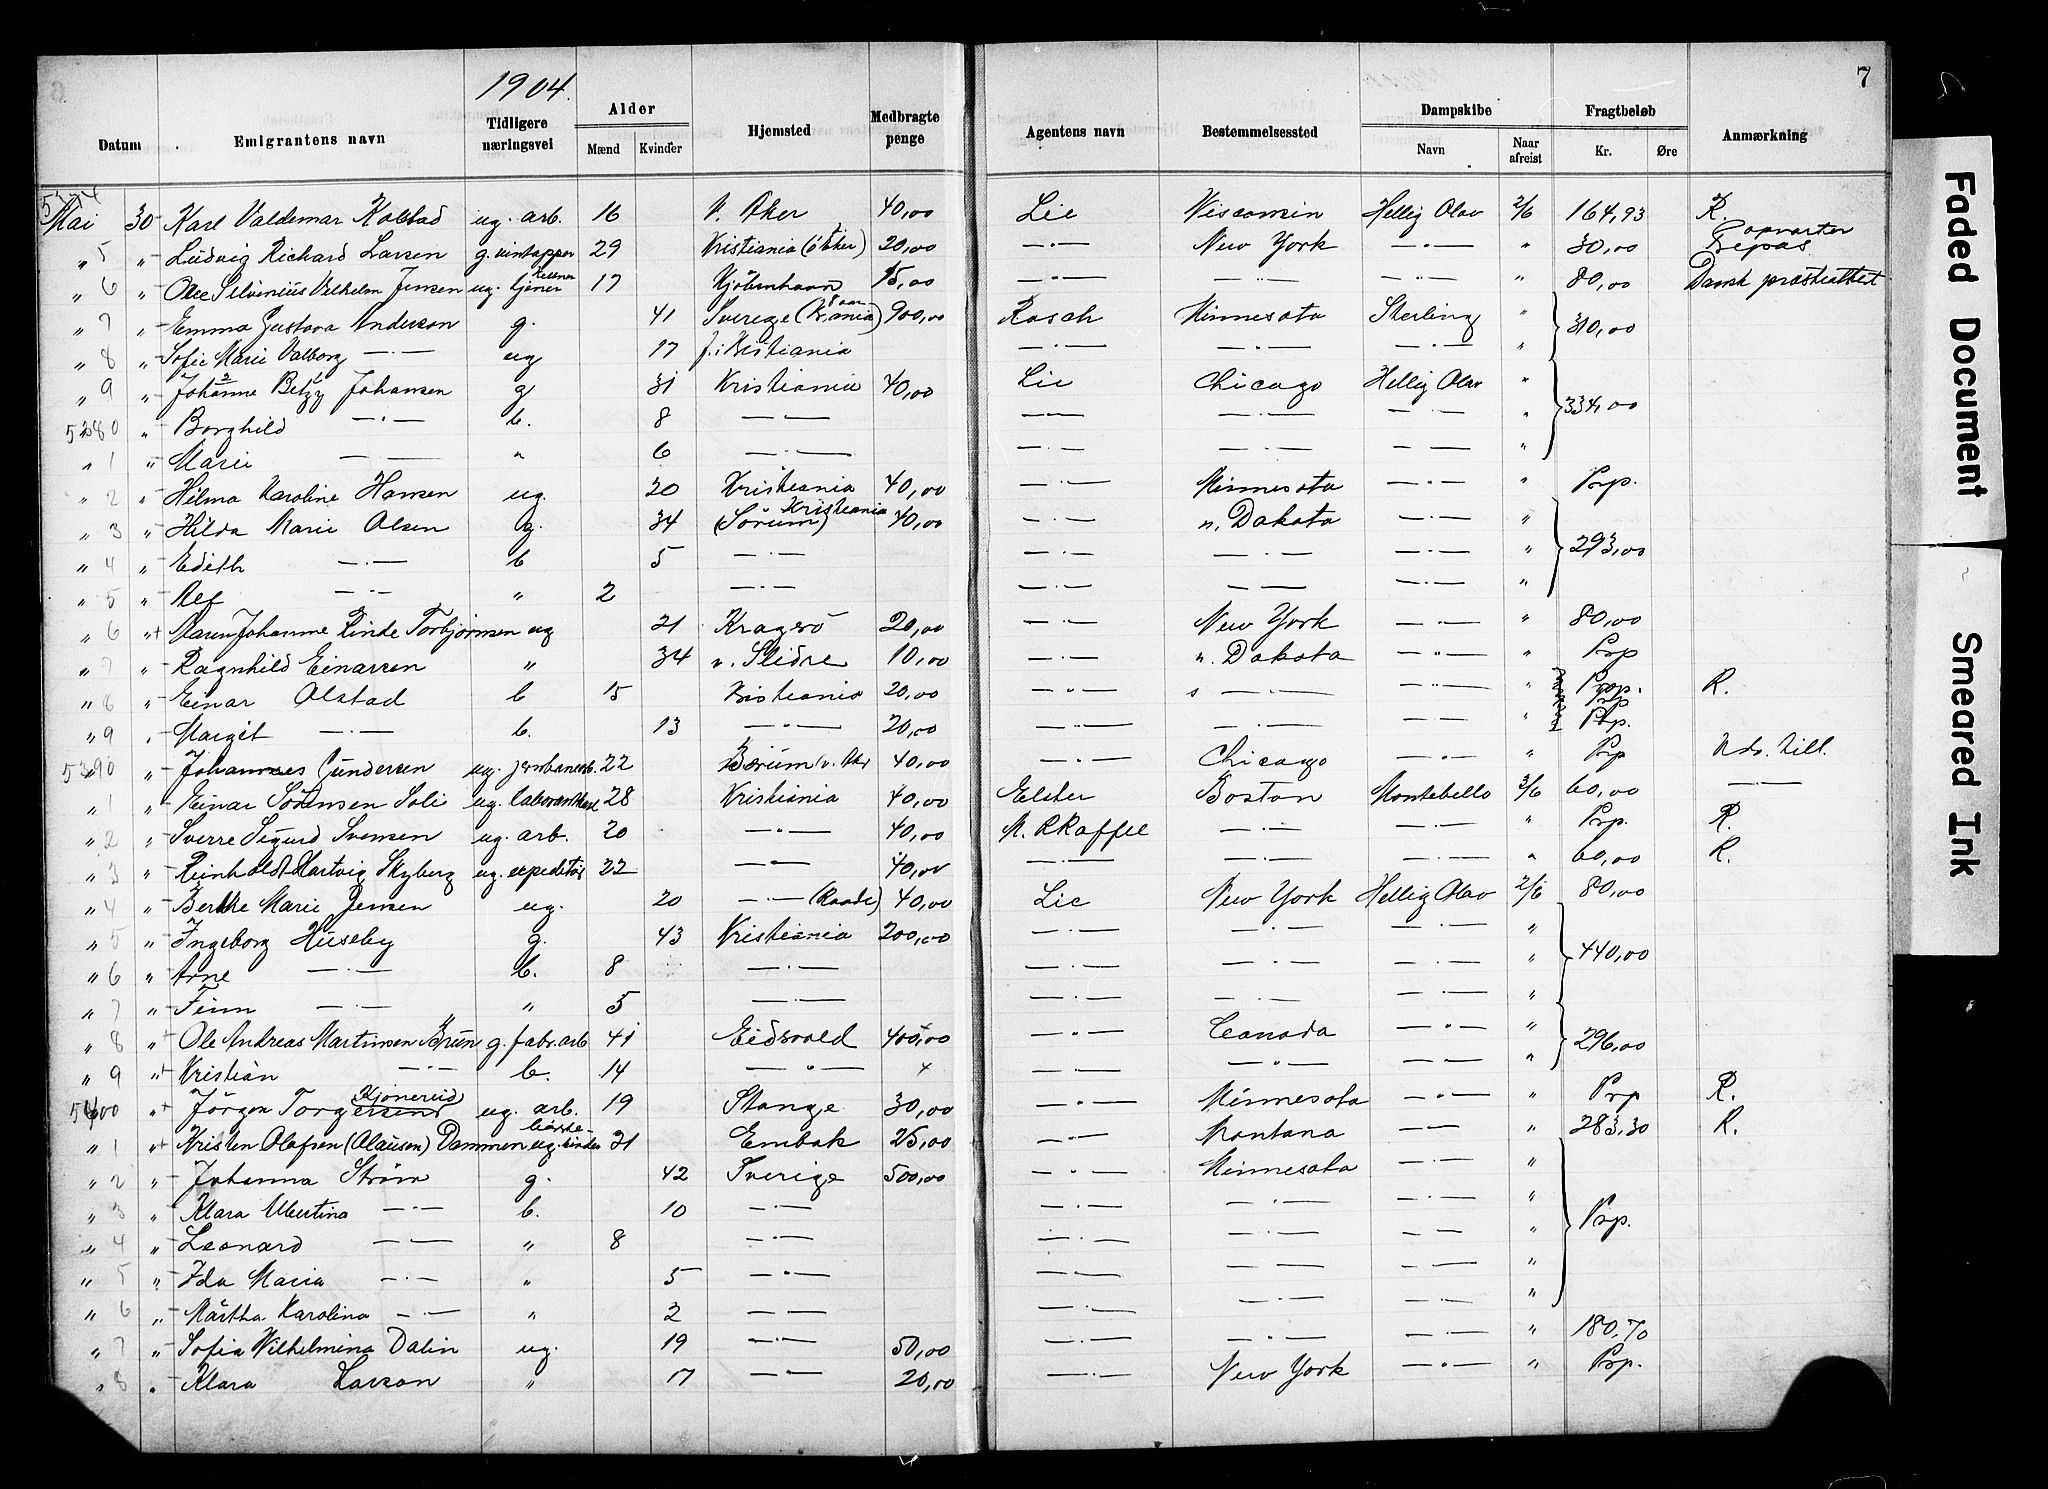 1904.
7
Datum Emigrantens navn Tidligere næringsvei Alder Mænd Kvinder Hjemsted Medbragte penge Agentens navn Bestemmelsessted Dampskibe Navn Naar afreist Fragtbeløb Kr. Øre Anmærkning
5374
Mai 30 Karl Valdemar Kolstad ug. arb. 16 V. Aker 40,00 Lie Visconsin Hellig Olav 2/6 164,93 R.
" 5 " Ludvig Richard Larsen g. vintapper 29 Kristiania (ö Aker) 20,00 —·— New York —·— " 30,00 Opvarter Repas
" 6 " Ole Silvenius Vilhelm Jensen ug. kellner tjener 17 Kjöbenhavn 15,00 —·— —·— —·— " 80,00 Dansk præsteattest
" 7 " Emma Gustava Anderson g. 41 Sverige (8 aar Kr.ania) 900,00 Rasch Minnesota Sterling " 310,00
" 8 " Sofie Marie Valborg —·— ug 17 f. i Kristiania —·— —·— —·— "
" 9 " Johanne Betzy Johansen g 31 Kristiania 40,00 Lie Chicago Hellig Olav " 334,00
5380 " Borghild —·— b. 8 —·— —·— —·— —·— "
" 1 " Marie —— " 6 —·— —·— —·— —·— "
" 2 " Hilma Karoline Hansen ug. 20 Kristiania 40,00 —·— Minnesota —·— " Prp.
" 3 " Hilda Marie Olsen g. 34 (Sörum) Kristiania 40,00 —·— n. Dakota —·— " 293,00
" 4 " Edith —·— b 5 —·— —·— —·— —·— "
" 5 " Alf —·— " 2 —·— —·— —— —·— "
" 6 " Maren Johanne Rinde Torbjörnsen ug 21 Kragerö 20,00 —·— New York —·— " 80,00
" 7 " Ragnhild Einarsen " 34 v. Slidre 10,00 —·— n. Dakota —·— " Prp
" 8 " Einar Olstad b 15 Kristiania 20,00 —·— s —·— —·— " Prp. R.
" 9 " Margit —·— b. 13 —·— 20,00 —·— —·— —·— " Prp.
5390 " Johannes Gundersen ug. jernbanearb. 22 Bærum v. Akr 40,00 —·— Chicago —·— " Prp Udv. till.
" 1 " Einar Sörensen Soli ug. laborantkarl 28 Kristiania 40,00 Elster Boston Montebello 3/6 60,00 —·—
" 2 " Sverre Sigurd Svensen ug. arb. 20 —·— 40,00 M. R Raffel —·— —·— " Prp. R.
" 3 " Reinholdt Hartvig Skyberg ug. expeditör 22 —·— 40,00 —·— —·— —·— " 60,00 R.
" 4 " Berthe Marie Jensen ug. 20 —·— (Raade) 40,00 Lie New York Hellig Olav 2/6 80,00
" 5 " Ingeborg Huseby g. 43 Kristiania 200,00 —·— —·— —·— " 440,00
" 6 " Arne —·— b. 8 —·— —·— —·— —·— "
" 7 " Finn —·— " 5 —·— —·— —·— —·— "
" 8 " Ole Andreas Martinsen Brun g. fabr. arb 41 Eidsvold 400,00 —·— Canada —·— " 296,00
" 9 " Kristian —·— b. 14 —·— —·— —·— —·— "
5400 " Jörgen Torgersen Kjönerud ug. arb. 19 Stange 30,00 —·— Minnesota —·— " Prp R.
" 1 " Kristen Olafsen (Olausen) Dammen ug. börste-binder 21 Embak 25,00 —·— Montana —·— " 283,30 R.
" 2 " Johanna Ström g. 42 Sverige 500,00 —·— Minnesota —·— " Prp.
" 3 " Klara Albertina —·— b. 10 —·— —·— —·— —·— "
" 4 " Leonard —— " 8 —·— —·— —·— —·— "
" 5 " Ida Maria —·— " 5 —·— —·— —·— —·— "
" 6 " Märtha Karolina —·— " 2 —·— —·— —·— —·— "
" 7 " Sofia Wilhelmina Dalin ug. 19 —·— 50,00 —·— —·— —·— " 180,70
" 8 " Klara Larson " 17 —·— 20,00 —·— New York —·— " Prp.
Faded Document
Smeared Ink